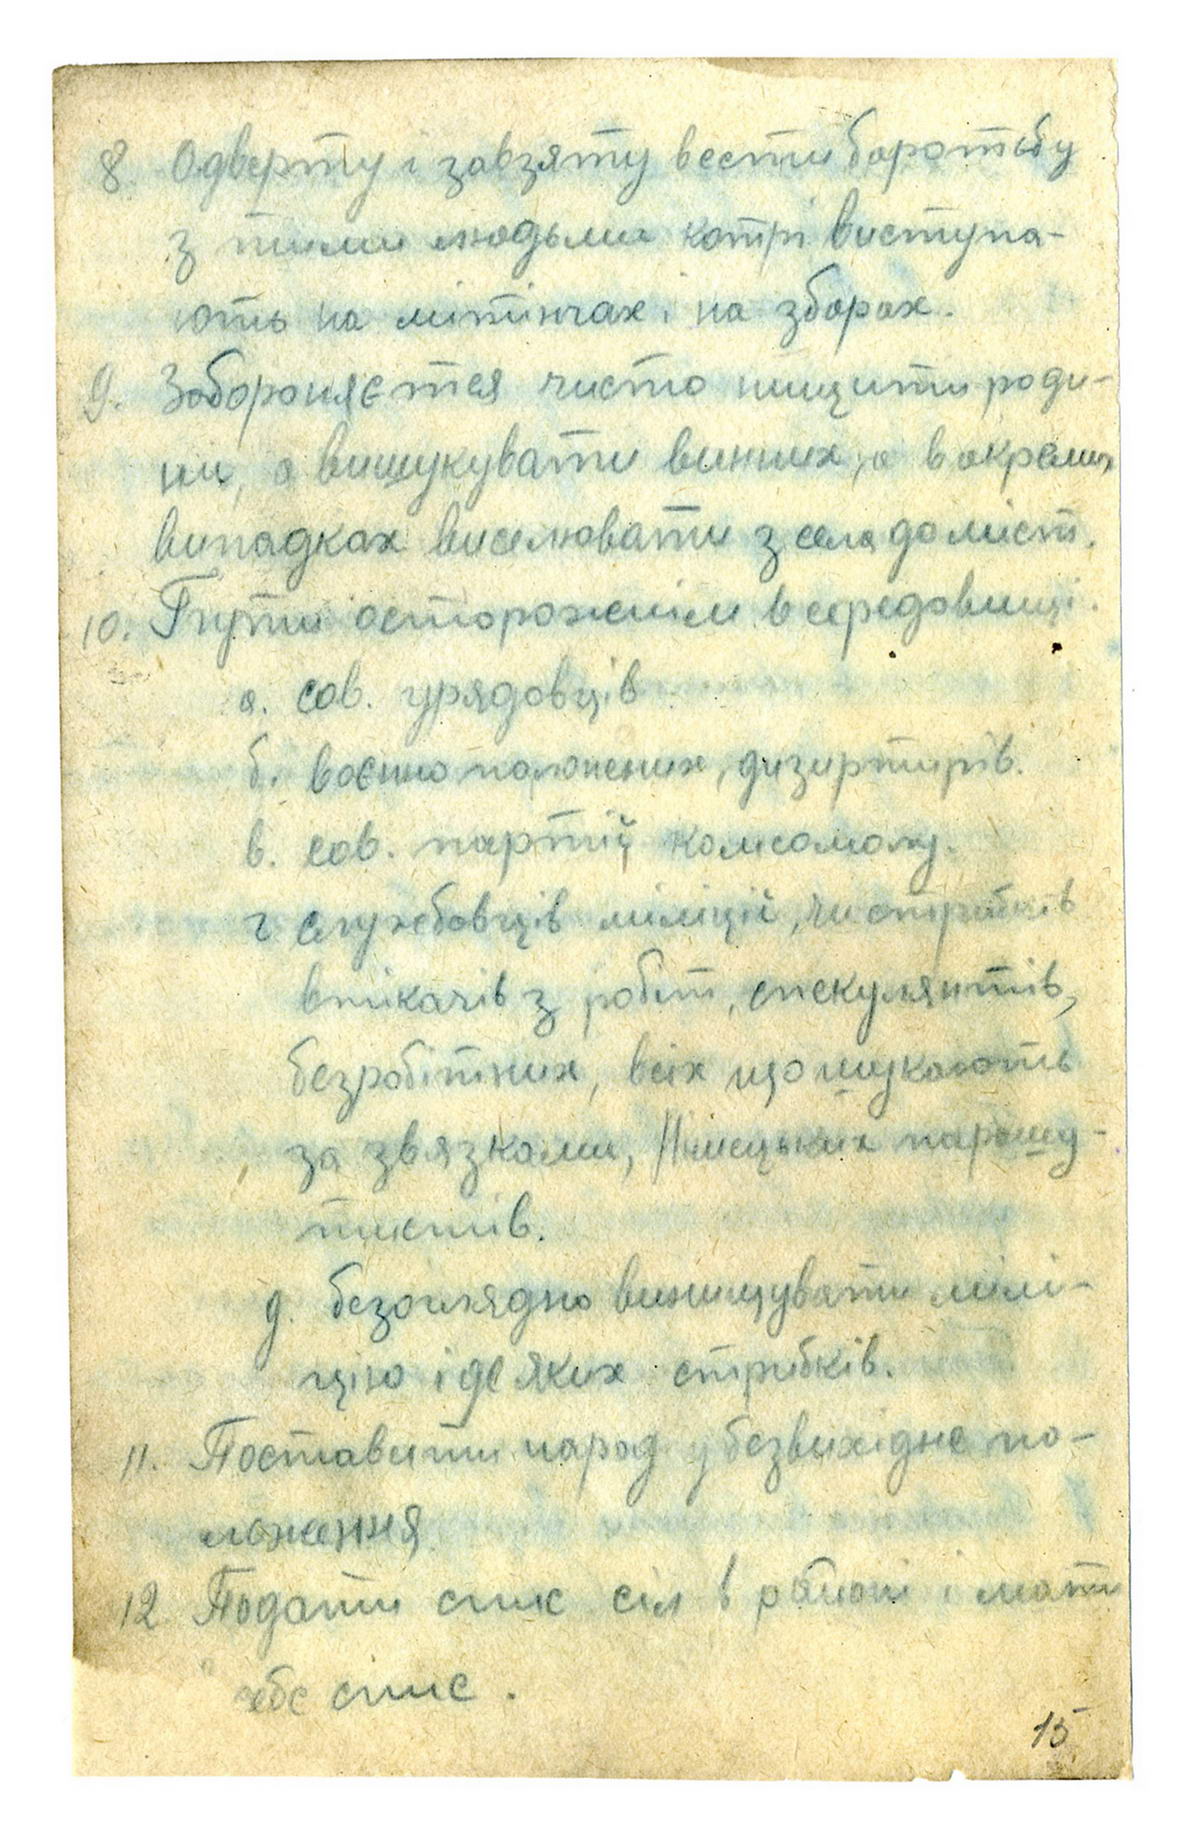 8. Одверту і завзяту вести боротьбу
з тими людьми котрі виступа-
ють на мітінгах і на зборах.
9. Забороняєтся чисто нищити роди-
ни, а вишукувати винних, а в окремих
випадках виселювати з села до міст.
10. Бути осторожнім в середовищі.
а. сов. урядовців
б. воєнно полонених, дизиртирів.
в. сов. партій комсомолу.
г службовців міліції, чи стрибків
втікачів з робіт, спекулянтів,
безробітних, всіх що шукають
за звязками, Німецьких парашу-
тистів.
д. безоглядно винищувати мілі-
цію і де яких стрибків.
11. Поставити народ у безвихідне по-
ложення
12 Подати спис сіл в районі і мати
себе спис.
15